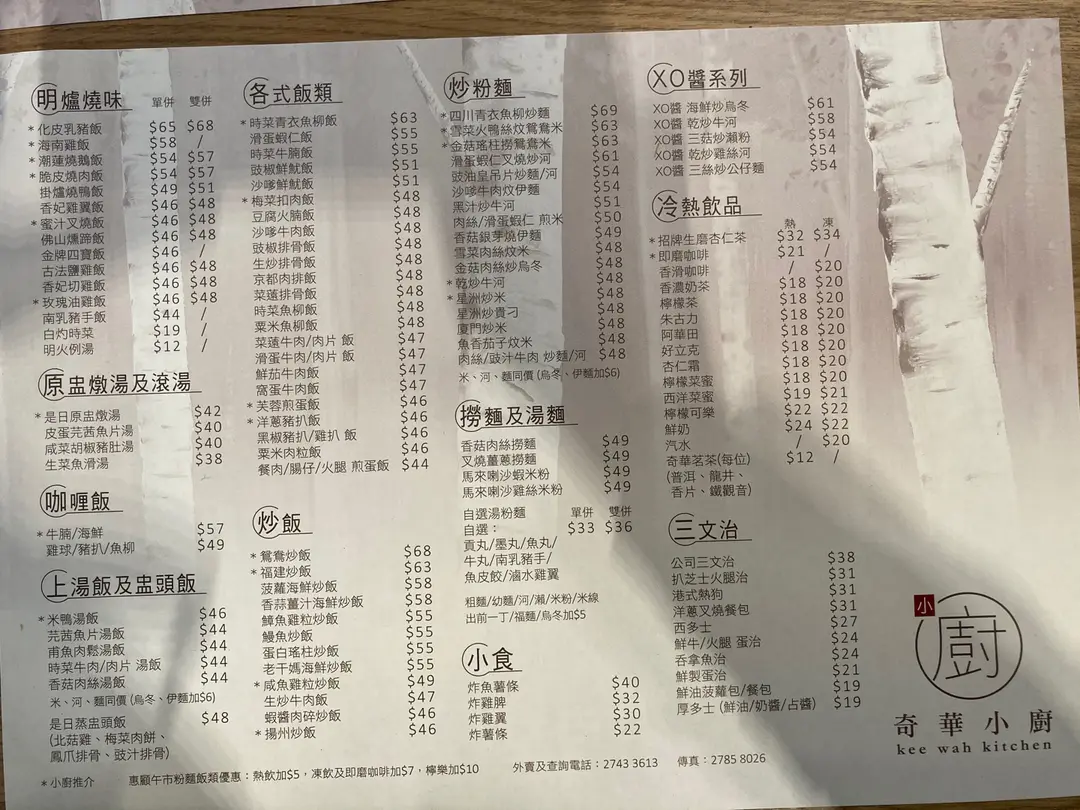 明爐燒味 單併 雙併
*化皮乳豬飯 $65 $68
*海南雞飯 $58 /
*潮蓮燒鵝飯 $54 $57
*脆皮燒肉飯 $54 $57
掛爐燒鴨飯 $49 $51
香妃雞翼飯 $46 $48
*蜜汁叉燒飯 $46 $48
佛山燻蹄飯 $46 $48
金牌四寶飯 $46 /
古法鹽雞飯 $46 $48
香妃切雞飯 $46 $48
*玫瑰油雞飯 $46 $48
南乳豬手飯 $44 /
白灼時菜 $19 /
明火例湯 $12 /
原盅燉湯及滾湯
*是日原盅燉湯 $42
皮蛋芫茜魚片湯 $40
咸菜胡椒豬肚湯 $40
生菜魚滑湯 $38
咖喱飯
*牛腩/海鮮 $57
雞球/豬扒/魚柳 $49
上湯飯及盅頭飯
*米鴨湯飯 $46
芫茜魚片湯飯 $44
甫魚肉鬆湯飯 $44
時菜牛肉/肉片 湯飯 $44
香菇肉絲湯飯 $44
米、河、麵同價 (烏冬、伊麵加$6)
是日蒸盅頭飯 $48
(北菇雞、梅菜肉餅、
鳳爪排骨、豉汁排骨)
各式飯類
*時菜青衣魚柳飯 $63
滑蛋蝦仁飯 $55
時菜牛腩飯 $55
豉椒鮮魷飯 $51
沙嗲鮮魷飯 $51
*梅菜扣肉飯 $48
豆腐火腩飯 $48
沙嗲牛肉飯 $48
豉椒排骨飯 $48
生炒排骨飯 $48
京都肉排飯 $48
菜薳排骨飯 $48
時菜魚柳飯 $48
粟米魚柳飯 $48
菜薳牛肉/肉片 飯 $47
滑蛋牛肉/肉片 飯 $47
鮮茄牛肉飯 $47
窩蛋牛肉飯 $47
*芙蓉煎蛋飯 $46
*洋蔥豬扒飯 $46
黑椒豬扒/雞扒 飯 $46
粟米肉粒飯 $46
餐肉/腸仔/火腿 煎蛋飯 $44
炒飯
*鴛鴦炒飯 $68
*福建炒飯 $63
菠蘿海鮮炒飯 $58
香蒜薑汁海鮮炒飯 $58
鱆魚雞粒炒飯 $55
鰻魚炒飯 $55
蛋白瑤柱炒飯 $55
老干媽海鮮炒飯 $55
*咸魚雞粒炒飯 $49
生炒牛肉飯 $47
蝦醬肉碎炒飯 $46
*揚州炒飯 $46
炒粉麵
*四川青衣魚柳炒麵 $69
*雪菜火鴨絲炆鴛鴦米 $63
*金菇瑤柱撈鴛鴦米 $63
滑蛋蝦仁叉燒炒河 $61
豉油皇吊片炒麵/河 $54
沙嗲牛肉炆伊麵 $54
黑汁炒牛河 $51
肉絲/滑蛋蝦仁 煎米 $50
香菇銀芽燒伊麵 $49
雪菜肉絲炆米 $48
金菇肉絲炒烏冬 $48
*乾炒牛河 $48
*星洲炒米 $48
星洲炒貴刁 $48
廈門炒米 $48
魚香茄子炆米 $48
肉絲/豉汁牛肉 炒麵/河 $48
米、河、麵同價 (烏冬、伊麵加$6)
撈麵及湯麵
香菇肉絲撈麵 $49
叉燒薑蔥撈麵 $49
馬來喇沙蝦米粉 $49
馬來喇沙雞絲米粉 $49
自選湯粉麵 單併 雙併
自選： $33 $36
貢丸/墨丸/魚丸/
牛丸/南乳豬手/
魚皮餃/滷水雞翼
粗麵/幼麵/河/瀨/米粉/米線
出前一丁/福麵/烏冬加$5
小食
炸魚薯條 $40
炸雞脾 $32
炸雞翼 $30
炸薯條 $22
XO醬系列
XO醬 海鮮炒烏冬 $61
XO醬 乾炒牛河 $58
XO醬 三菇炒瀨粉 $54
XO醬 乾炒雞絲河 $54
XO醬 三絲炒公仔麵 $54
冷熱飲品 熱 凍
*招牌生磨杏仁茶 $32 $34
*即磨咖啡 $21 /
香滑咖啡 / $20
香濃奶茶 $18 $20
檸檬茶 $18 $20
朱古力 $18 $20
阿華田 $18 $20
好立克 $18 $20
杏仁霜 $18 $20
檸檬菜蜜 $18 $20
西洋菜蜜 $19 $21
檸檬可樂 $22 $22
鮮奶 $24 $22
汽水 / $20
奇華茗茶(每位) $12 /
(普洱、龍井、
香片、鐵觀音)
三文治
公司三文治 $38
扒芝士火腿治 $31
港式熱狗 $31
洋蔥叉燒餐包 $31
西多士 $27
鮮牛/火腿 蛋治 $24
吞拿魚治 $24
鮮製蛋治 $21
鮮油菠蘿包/餐包 $19
厚多士 (鮮油/奶醬/占醬) $19
小廚
奇華小廚
kee wah kitchen
*小廚推介 惠顧午市粉麵飯類優惠：熱飲加$5，凍飲及即磨咖啡加$7，檸樂加$10 外賣及查詢電話：2743 3613 傳真：2785 8026